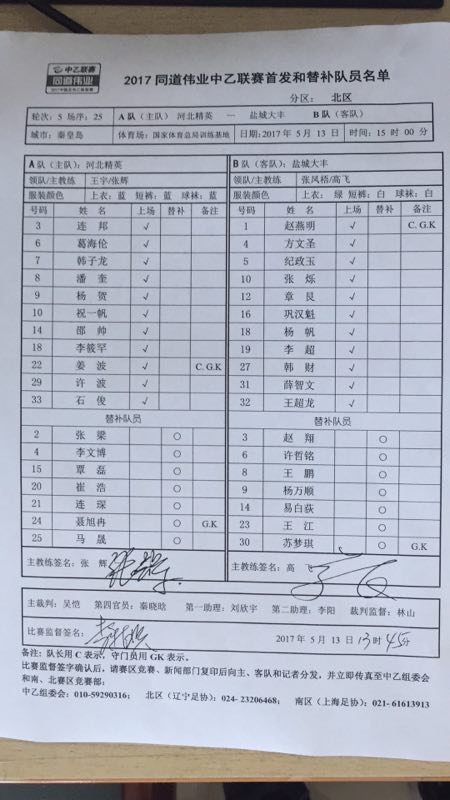 中乙联赛
同道伟业
2017 同道伟业中乙联赛首发和替补队员名单
分区： 北区
轮次：5 场序：25 A 队（主队）河北精英 — 盐城大丰 B 队（客队）
城市：秦皇岛 体育场：国家体育总局训练基地 日期：2017 年 5 月 13 日 时间：15 时 00 分
A 队（主队）：河北精英 B 队（客队）：盐城大丰
领队/主教练 王宇/张辉 领队/主教练 张凤梧/高飞
服装颜色 上衣：蓝 短裤：蓝 球袜：蓝 服装颜色 上衣：绿 短裤：白 球袜：白
号码 姓 名 上场 替补 备注 号码 姓 名 上场 替补 备注
3 连 邦 √ 1 赵燕明 √ C. G.K
6 葛海伦 √ 4 方文圣 √
7 韩子龙 √ 5 纪政玉 √
8 潘 奎 √ 10 张 烁 √
9 杨 贺 √ 12 章 良 √
10 祝一帆 √ 16 巩汉魁 √
14 邵 帅 √ 18 杨 帆 √
18 李筱罕 √ 19 李 超 √
22 姜 波 √ C. G.K 27 韩 财 √
29 许 波 √ 31 薛智文 √
33 石 俊 √ 32 王超龙 √
替补队员 替补队员
2 张 梁 ○ 3 赵 翔 ○
4 李文博 ○ 6 许哲铭 ○
15 覃 磊 ○ 8 王 鹏 ○
20 崔 浩 ○ 9 杨万顺 ○
21 连 琛 ○ 14 易白荻 ○
24 聂旭冉 ○ G.K 23 王 江 ○
25 马 晟 ○ 30 苏梦琪 ○ G.K
主教练签名：张 辉 主教练签名：高
主裁判：吴恺 第四官员：秦晓晗 第一助理：刘欣宇 第二助理：李阳 裁判监督：林山
比赛监督签名： 2017 年 5 月 13 日 13时 45分
备注：队长用 C 表示，守门员用 GK 表示。
比赛监督签字确认后，请赛区竞赛、新闻部门复印后向主、客队和记者分发，并立即传真至中乙组委会
和南、北赛区竞赛部；
中乙组委会：010-59290316； 北区（辽宁足协）：024- 23206468； 南区（上海足协）：021- 61613913